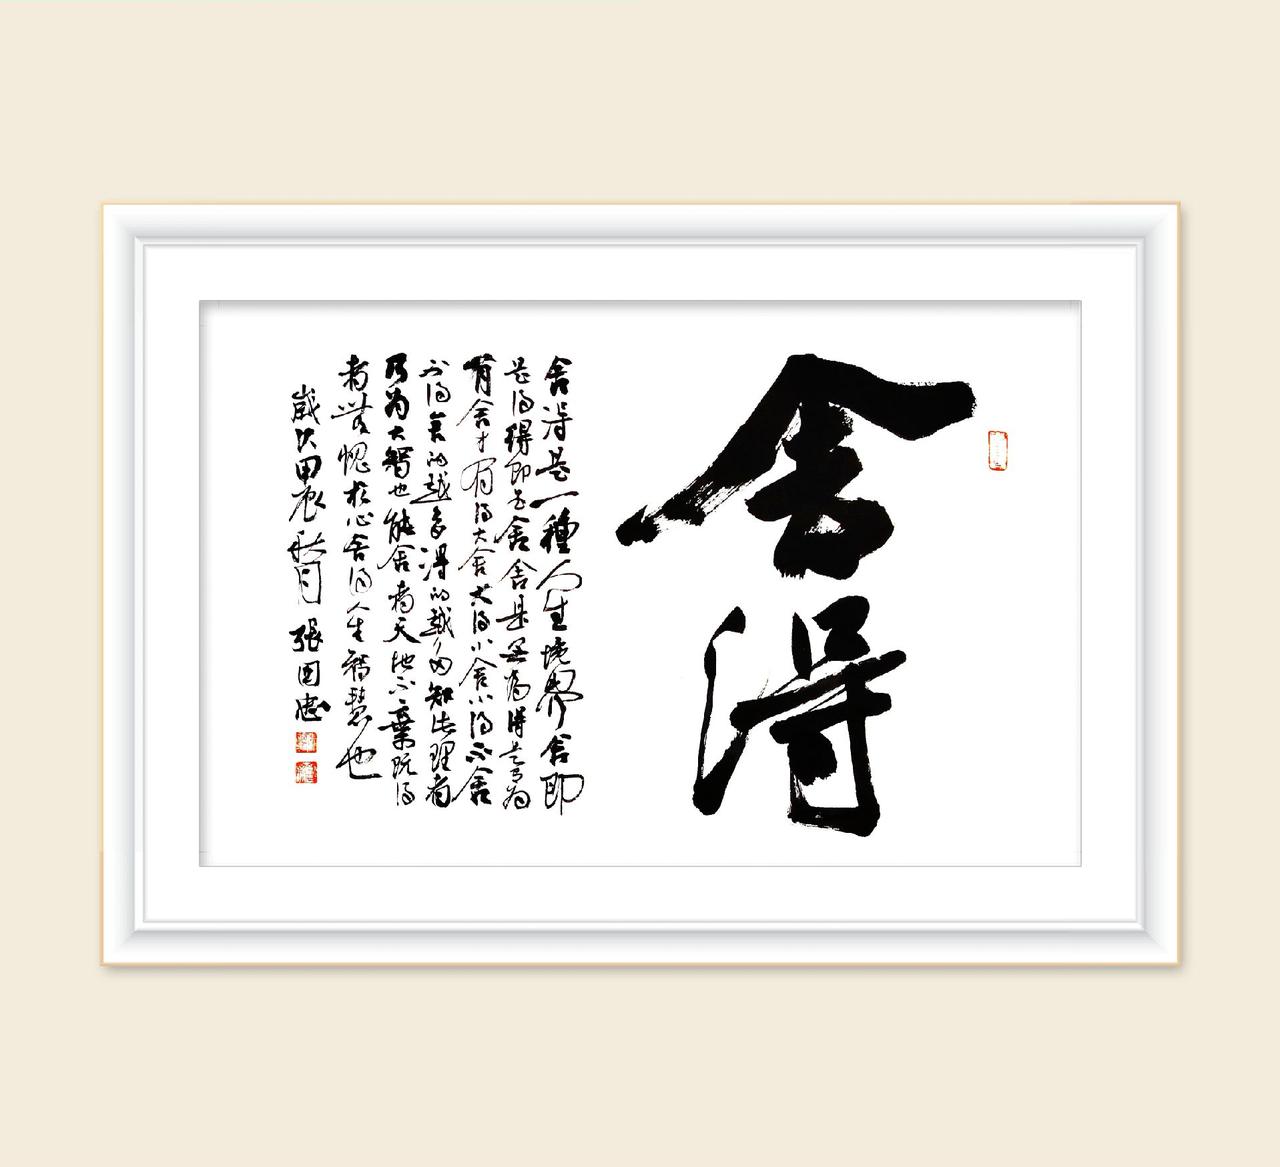 舍得
舍得是一種人生境界舍即
是得得即是舍舍是無為得是有為
有舍才有得大舍大得小舍小得不舍
不得舍的越多得的越多因知此理者
乃为大智也能舍者天地不棄既得
者無愧於心舍得人生智慧也
歲次甲辰秋月 張国忠